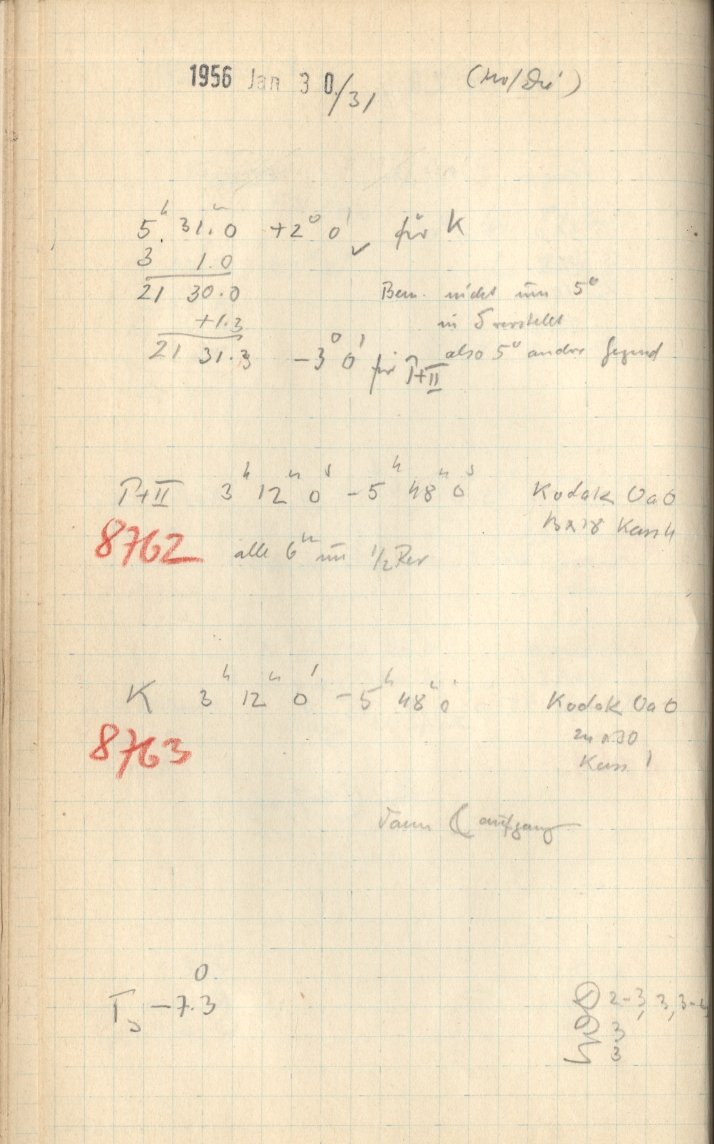 1956 Jan 30/31
5ʰ 31ᵐ.0 +2° 0' ✓ für K
3 1.0
21 30.0
+1.3
21 31.3 -3° 0' für I+II
Bem. nicht um 5°
in δ verstellt
also 5° andre Gegend
I+II 3ʰ 12ᵐ 0ˢ - 5ʰ 48ᵐ 0ˢ Kodak OaO
8762 alle 6ᵐ um ½ Rev
Kass 4
K 3ʰ 12ᵐ 0ˢ - 5ʰ 48ᵐ 0ˢ Kodak OaO
8763
Kass 1
Dann ☾ aufgang
-7.3
2-3, 3, 3-4
3
3